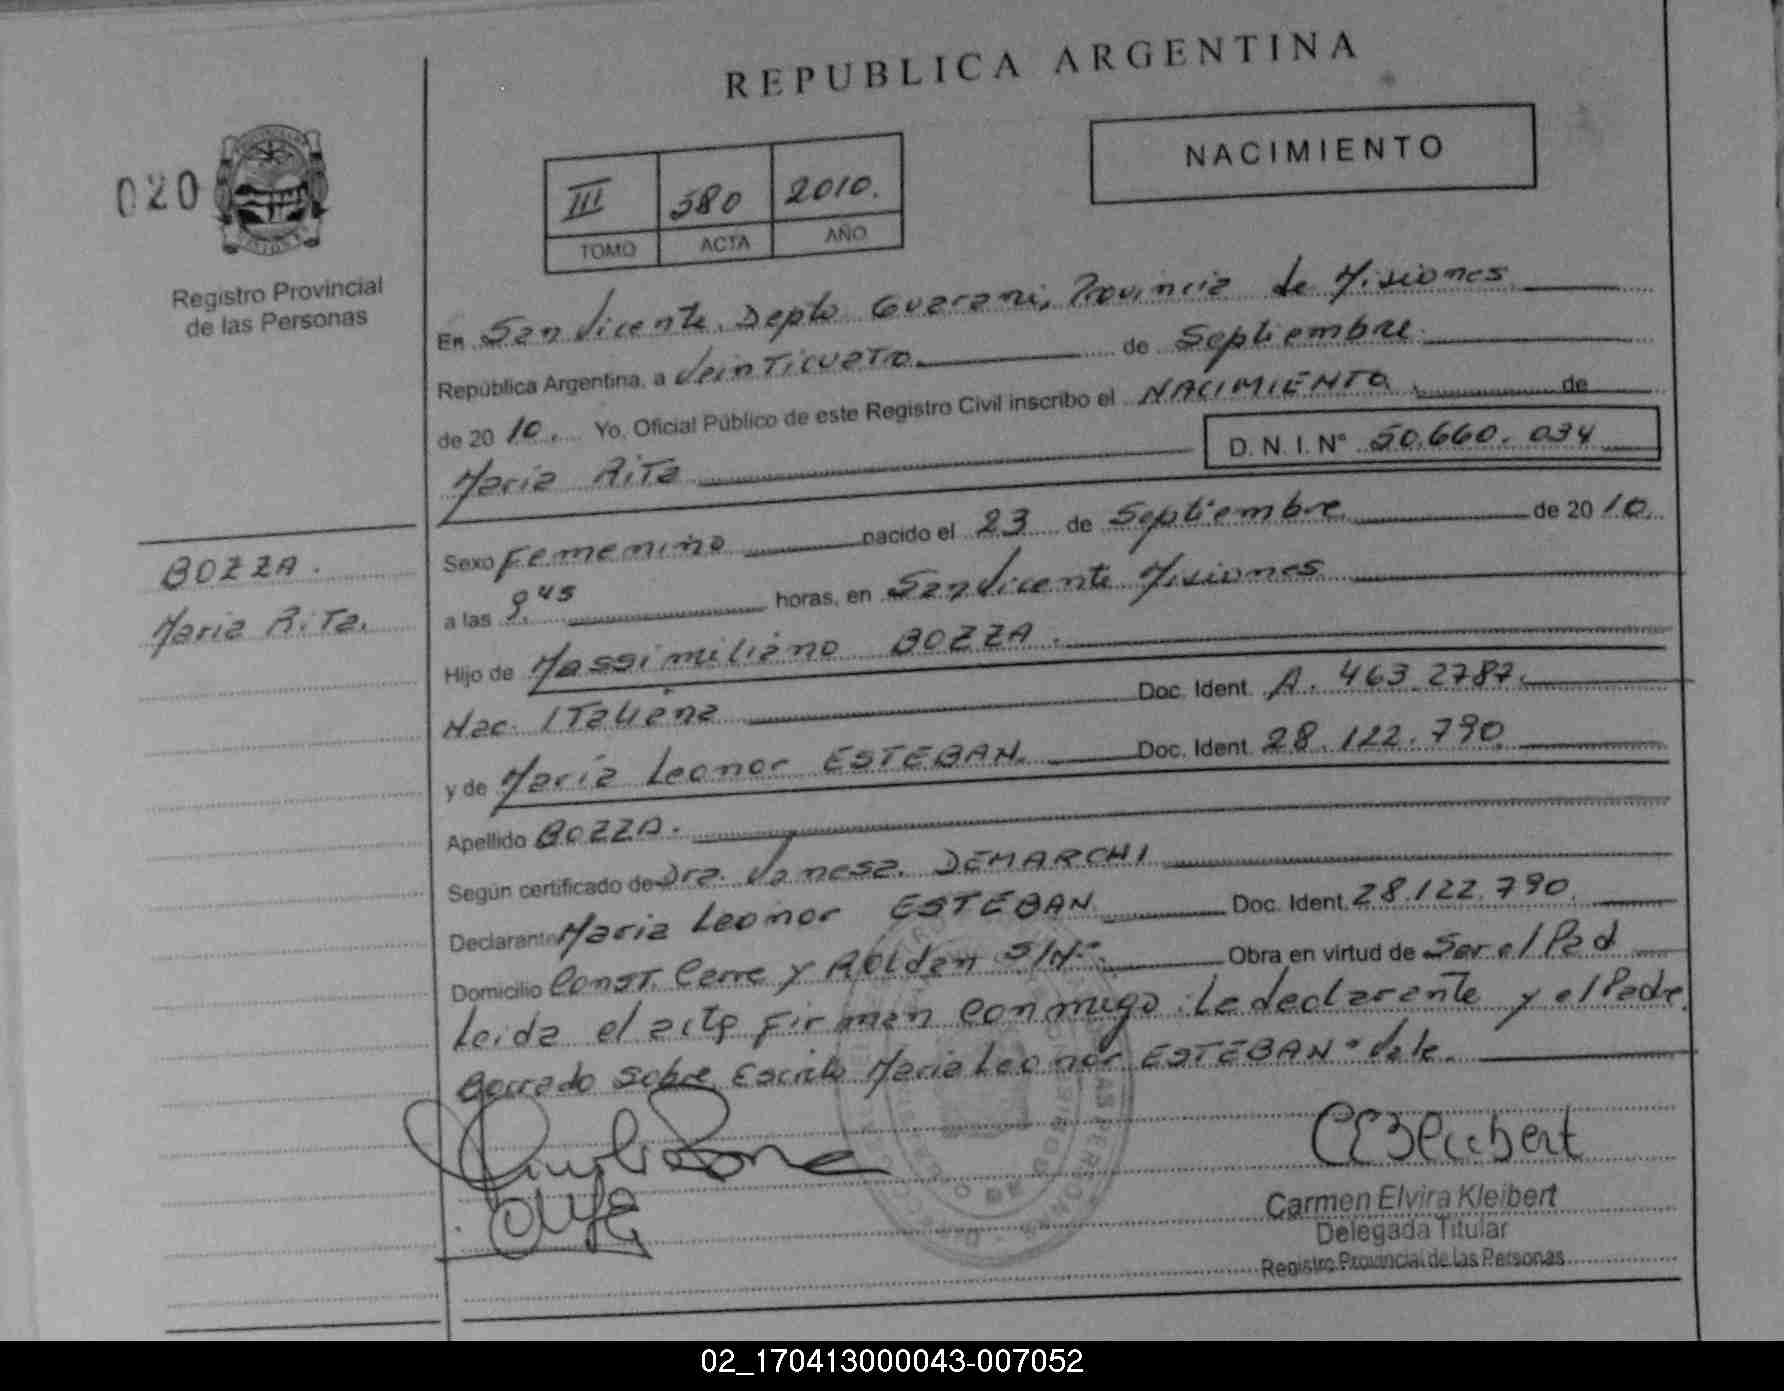 REPUBLICA ARGENTINA
NACIMIENTO
020
III 380 2010.
TOMO ACTA AÑO
Registro Provincial
de las Personas
En San Vicente, Depto Guarani, Provincia de Misiones
República Argentina, a Veinticuatro de Septiembre
de 2010. Yo, Oficial Público de este Registro Civil inscribo el NACIMIENTO de
Maria Rita D. N. I. N° 50.660.034
BOZZA.
Maria Rita.
Sexo Femenino nacido el 23 de Septiembre de 2010.
a las 9,45 horas, en San Vicente Misiones
Hijo de Massimiliano BOZZA.
Nac. Italiana Doc. Ident. A. 463.2787.
y de Maria Leonor ESTEBAN. Doc. Ident. 28.122.790
Apellido BOZZA.
Según certificado de Dra. Vanesa. DEMARCHI
Declarante Maria Leonor ESTEBAN Doc. Ident. 28.122.790.
Domicilio Const. Cerre y Roldan S/Nº. Obra en virtud de Ser el Pad
Leida el acta firman conmigo: La declarante y el Padre.
Borrado sobre Escrito Maria Leonor ESTEBAN Vale.
Carmen Elvira Kleibert
Delegada Titular
Registro Provincial de las Personas
02_170413000043-007052